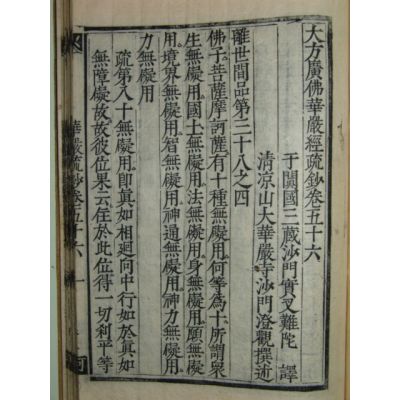 大方廣佛華嚴經疏鈔卷五十六
于闐國三藏沙門實叉難陀 譯
清涼山大華嚴寺沙門澄觀撰述
離世間品第三十八之四
佛子菩薩摩訶薩有十種無礙用何等為十所謂衆
生無礙用國土無礙用法無礙用身無礙用願無礙
用境界無礙用智無礙用神通無礙用神力無礙用
力無礙用
疏第八十無礙用即真如相迴向中行如於真如
無障礙故故彼位果云住於此位得一切利平等
華嚴疏鈔卷五十六 一